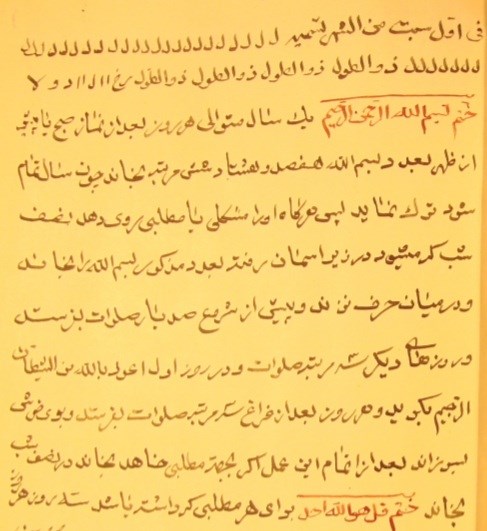 فی اوّل سبت من الشهر تسمیه ل ل ل ل ل ل ل ل ل ل ل ل ل
ذو الطول ذو الطول ذو الطول ذو الطول
ختم بسم الله الرحمن الرحیم یك سال متوالی هر روز بعد از نماز صبح یا
از ظهر بعدد بسم الله هفصد و هشتاد و شش مرتبه بخاند چون سال تمام
شود ترك نماید پس هر گاه اورا مشکلی یا مطلبی روی دهد نصف
شب که میشود در زیر اسمان رفته بعدد مذکور بسم الله را بخاند
و در میان حرف نزند و پیش از شروع صد بار صلوات بفرستد
و روزهای دیگر سه مرتبه صلوات و در روز اول اعوذ بالله من الشیطان
الرجیم بگوید و هر روز بعد از فراغ سه مرتبه صلوات بفرستد و بوی خوش
بسوزاند بعد از اتمام این عمل اگر بجهة مطلبی خاهد بخاند در نصف شب
بخاند ختم قل هو الله احد برای هر مطلبی که داشته باشد سه روز هر روز